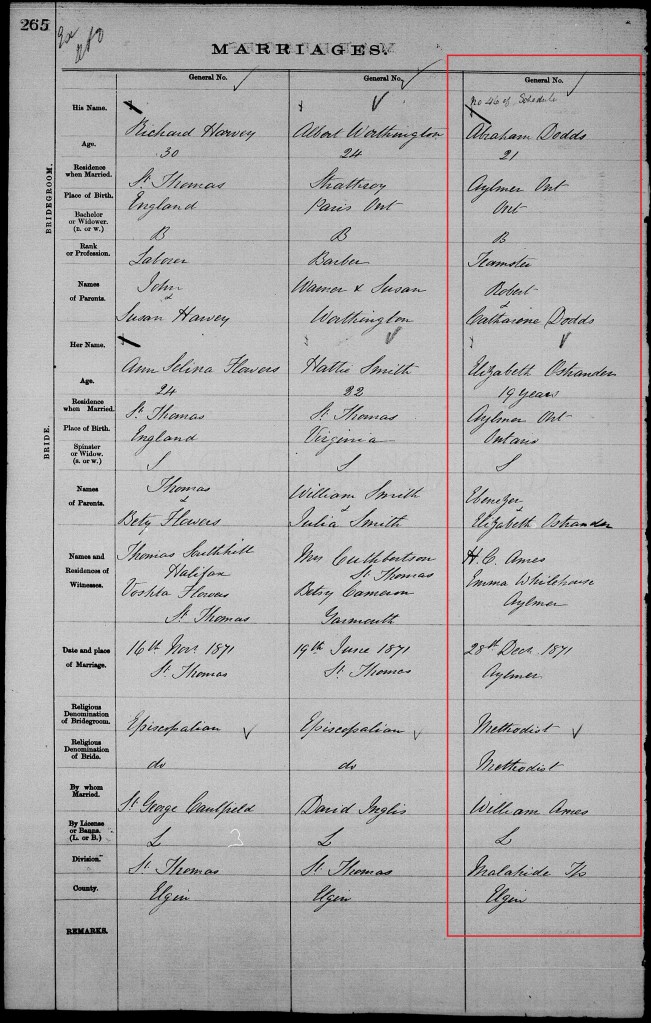 265
MARRIAGES.
General No. General No. General No.
No 46 of Schedule
His Name. Richard Harvey Albert Worthington Abraham Dodds
Age. 30 24 21
Residence when Married. St. Thomas Strathroy Aylmer Ont
Place of Birth. England Paris Ont Ont
Bachelor or Widower. (B. or W.) B B B
Rank or Profession. Laborer Barber Teamster
Names of Parents. John & Susan Harvey Warner & Susan Worthington Robert & Catharine Dodds
BRIDEGROOM.
Her Name. Ann Selina Flowers Hattie Smith Elizabeth Ostrander
Age. 24 22 19 years
Residence when Married. St. Thomas St. Thomas Aylmer Ont
Place of Birth. England Virginia Ontario
Spinster or Widow. (S. or W.) S S S
Names of Parents. Thomas & Bety Flowers William Smith & Julia Smith Ebenezer & Elizabeth Ostrander
BRIDE.
Names and Residences of Witnesses. Thomas Halifax Flowers St. Thomas Mrs Cuthbertson St Thomas Betsy Cameron Yarmouth H. C. Ames Emma Whitehouse Aylmer
Date and place of Marriage. 16th Novr 1871 St. Thomas 19th June 1871 St. Thomas 28th Decr. 1871 Aylmer.
Religious Denomination of Bridegroom. Episcopalian Episcopalian Methodist
Religious Denomination of Bride. do do Methodist
By whom Married. St George Caulfield David Inglis William Ames
By License or Banns. (L. or B.) L 3 L L
Division. St. Thomas St. Thomas Malahide T/s
County. Elgin Elgin Elgin
REMARKS.